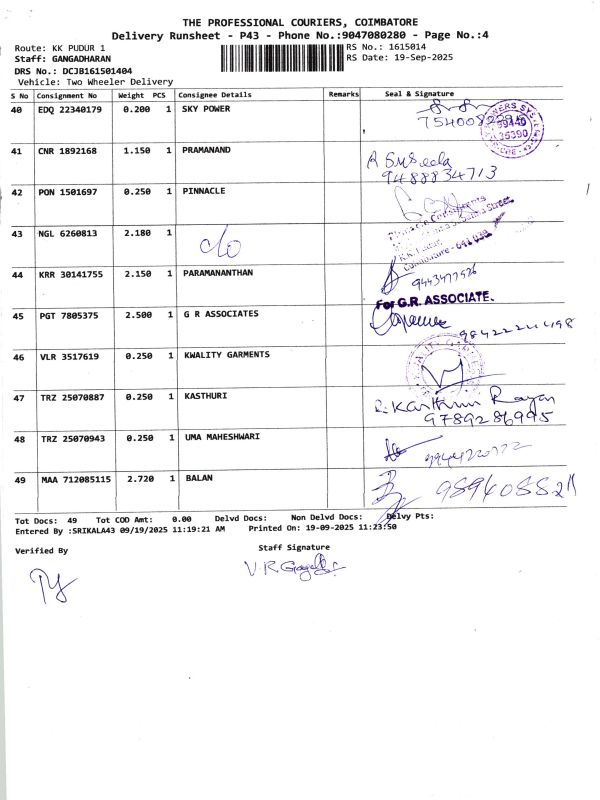 THE PROFESSIONAL COURIERS, COIMBATORE
Delivery Runsheet - P43 - Phone No.:9047080280 - Page No.:4
Route: KK PUDUR 1 RS No.: 1615014
Staff: GANGADHARAN RS Date: 19-Sep-2025
DRS No.: DCJB161501404
Vehicle: Two Wheeler Delivery
S No Consignment No Weight PCS Consignee Details Remarks Seal & Signature
40 EDQ 22340179 0.200 1 SKY POWER
41 CNR 1892168 1.150 1 PRAMANAND
A Suseela
9488834713
42 PON 1501697 0.250 1 PINNACLE
43 NGL 6260813 2.180 1 c/o
Coimbatore - 641 038
44 KRR 30141755 2.150 1 PARAMANANTHAN
9443477526
For G.R. ASSOCIATE.
45 PGT 7805375 2.500 1 G R ASSOCIATES
46 VLR 3517619 0.250 1 KWALITY GARMENTS
47 TRZ 25070887 0.250 1 KASTHURI
R. Kasthuri Rayan
9789286995
48 TRZ 25070943 0.250 1 UMA MAHESHWARI
49 MAA 712085115 2.720 1 BALAN
Tot Docs: 49 Tot COD Amt: 0.00 Delvd Docs: Non Delvd Docs: Delvy Pts:
Entered By :SRIKALA43 09/19/2025 11:19:21 AM Printed On: 19-09-2025 11:23:50
Verified By Staff Signature